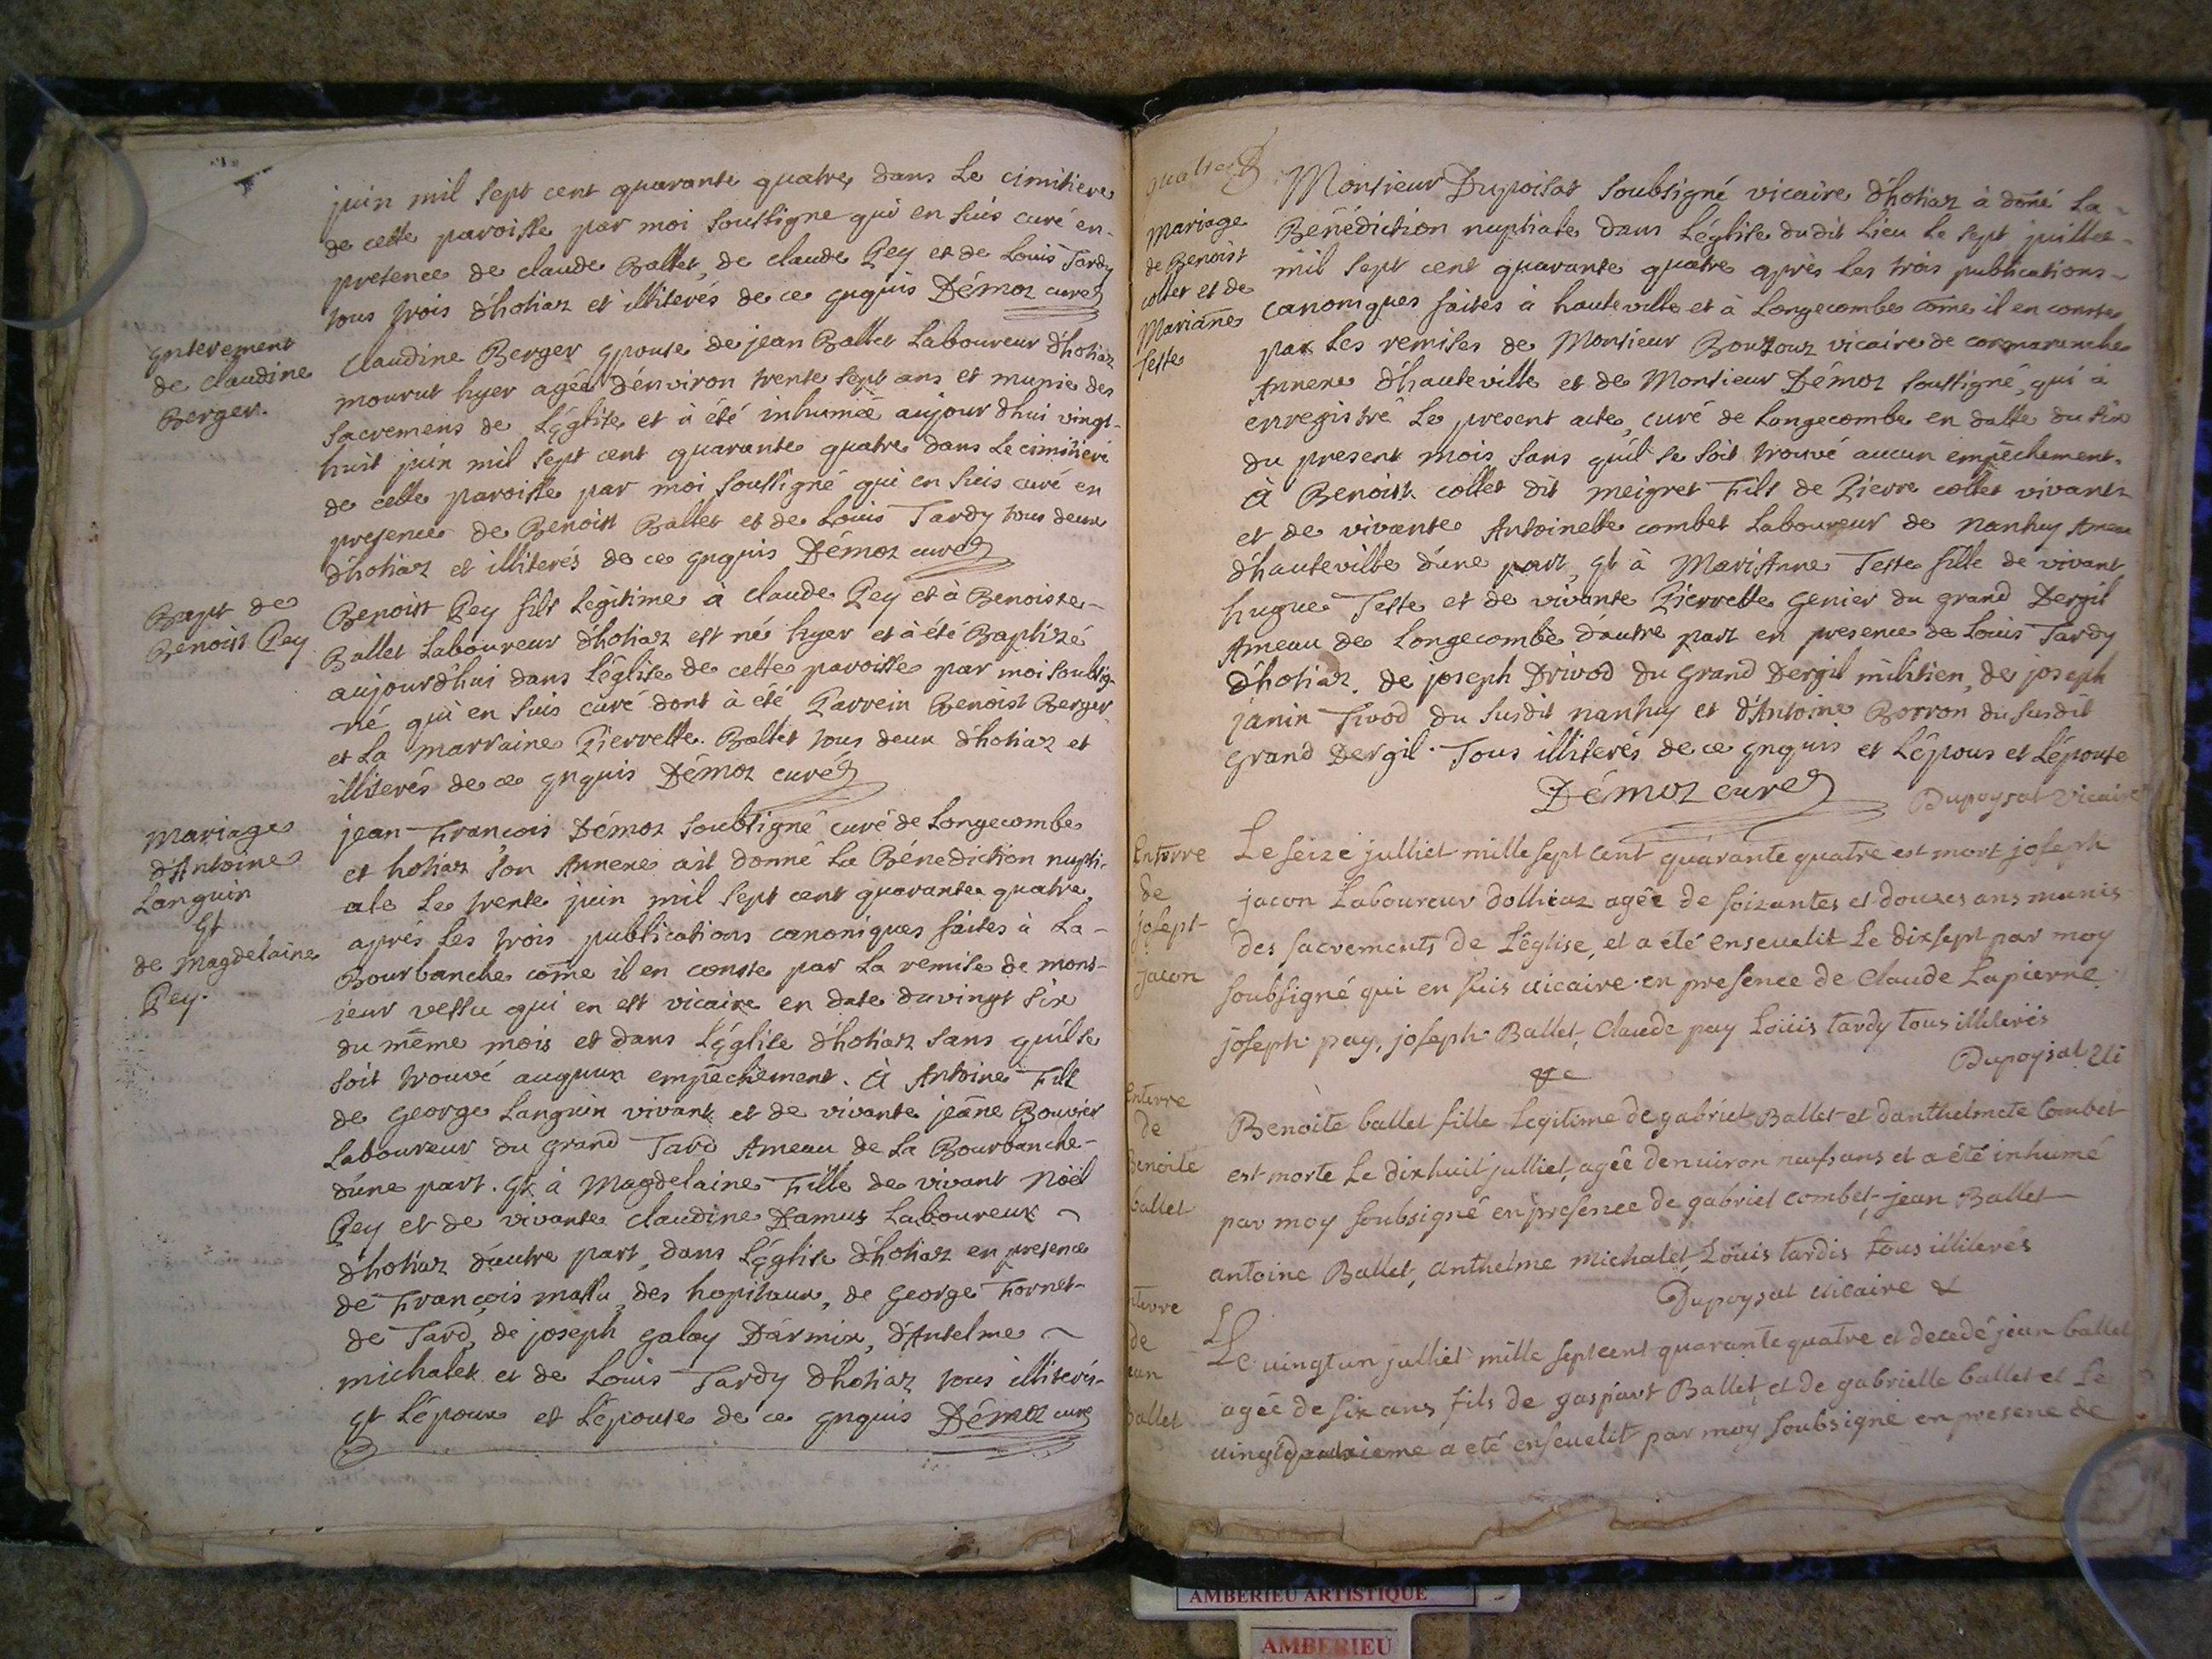 juin mil sept cent quarante quatre, dans Le cimitiere
de cette paroisse par moi soussigne qui en suis curé en-
presence de claude Ballet, de claude Pey et de Louis Tardy
tous trois d'hotiaz et illiterés de ce enquis Démoz curé
Enterement
de claudine
Berger.
Claudine Berger Epouse de jean Ballet Laboureur d'hotiaz
mourut hyer agée d'environ trente sept ans et munie des
sacremens de L'Eglise et à été inhumée aujourdhui vingt-
huit juin mil sept cent quarante quatre dans Le cimitiere
de cette paroisse par moi soussigné qui en suis curé en
presence de Benoist Ballet et de Louis Tardy tous deux
d'hotiaz et illiterés de ce enquis Démoz curé
Bapt de
Benoist Pey
Benoist Pey fils Légitime à claude Pey et à Benoiste-
Ballet Laboureur d'hotiaz est né hyer et à été Baptizé
aujourd'hui dans L'église de cette paroisse par moi soubsig-
né qui en suis curé dont à été Parrein Benoist Berger
et La marraine Pierrette Ballet tous deux d'hotiaz et
illiterés de ce enquis Démoz curé
Mariage
d'Antoine
Languin
Et
de Magdelaine
Pey.
jean-François Démoz soubsigné curé de Longecombe
et hotiaz son Annexe ait donné La Bénédiction nupti-
ale Le trente juin mil sept cent quarante quatre,
après Les trois publications canoniques faites à La-
Bourbanche come il en conste par La remise de mons-
ieur vessu qui en est vicaire en date du vingt six
du même mois et dans L'Eglise d'hotiaz sans qu'il se
soit trouvé auqun empêchement. à Antoine Fils
de George Languin vivant et de vivante jeane Bouvier
Laboureur du grand Tard Ameau de La Bourbanche-
d'une part. Et à Magdelaine Fille de vivant Noël
Pey et de vivante claudine Damus Laboureur
d'hotiaz d'autre part, dans L'Eglise d'hotiaz en presence
de François massu, des hopitaux, de George Fornet-
de Tard, de joseph galay D'armix, d'Antelme
michalet et de Louis Tardy d'hotiaz tous illiterés-
Et L'époux et L'épouse de ce enquis Démoz curé
quatre
Mariage
de Benoist
collet et de
Mariane
Teste
Monsieur Dupoisat soubsigné vicaire d'hotiaz à doné La-
Bénédiction nuptiale dans L'église dudit Lieu Le sept juillet-
mil sept cent quarante quatre après Les trois publications-
canoniques faites à hauteville et à Longecombe come il en conste
par Les remises de Monsieur Bouzouz vicaire de cormaranche
Annexe d'hauteville et de Monsieur Démoz soussigné, qui à
enregistré Le present acte, curé de Longecombe en datte du six
du present mois sans qu'il se soit trouvé aucun empêchement.
à Benoist collet dit meigret Fils de Pierre collet vivant
et de vivante Antoinette combet Laboureur de nanhuy Ameau
d'hauteville d'une part, Et à MariAnne Teste fille de vivant
hugue Teste et de vivante Pierrette Genier du grand Dergil
Ameau de Longecombe d'autre part en presence de Louis Tardy
d'hotiaz. de joseph Drivod du Grand Dergil militien, de joseph
janin Tivod du susdit nanhuy et d'Antoine Borron du susdit
grand Dergil. Tous illiterés de ce enquis et L'époux et L'épouse
Démoz curé
Dupoysat vicaire
Enterre
de
josept
jacon
Le seize julliet mille sept cent quarante quatre est mort joseph
jacon Laboureur dolhiaz agée de soizantes et douzes ans munis
des sacrements de L'église, et a été enseuelit Le dixsept par moy
soubsigné qui en suis uicaire en presence de Claude Lapierre
joseph pay, joseph Ballet, Claude pay Loüis tardy tous illiterés
Dupoysat Vi
Enterre
de
Benoite
ballet
Benoite ballet fille Legitime de gabriel Ballet et danthelmete Combet
est morte Le dixhuit julliet, agée denuiron neuf ans et a été inhumé
par moy soubsigné en presence de gabriel combet, jean Ballet
antoine Ballet, anthelme michalet, Loüis tardis tous illiteres
Dupoysat uicaire &
Enterre
de
jean
ballet
Le uingtun julliet mille septcent quarante quatre et decedé jean ballet
agée de six ans fils de gaspart Ballet, et de gabrielle ballet et Le
a eté enseuelit par moy soubsigné en presene de
AMBERIEU ARTISTIQUE
AMBERIEU